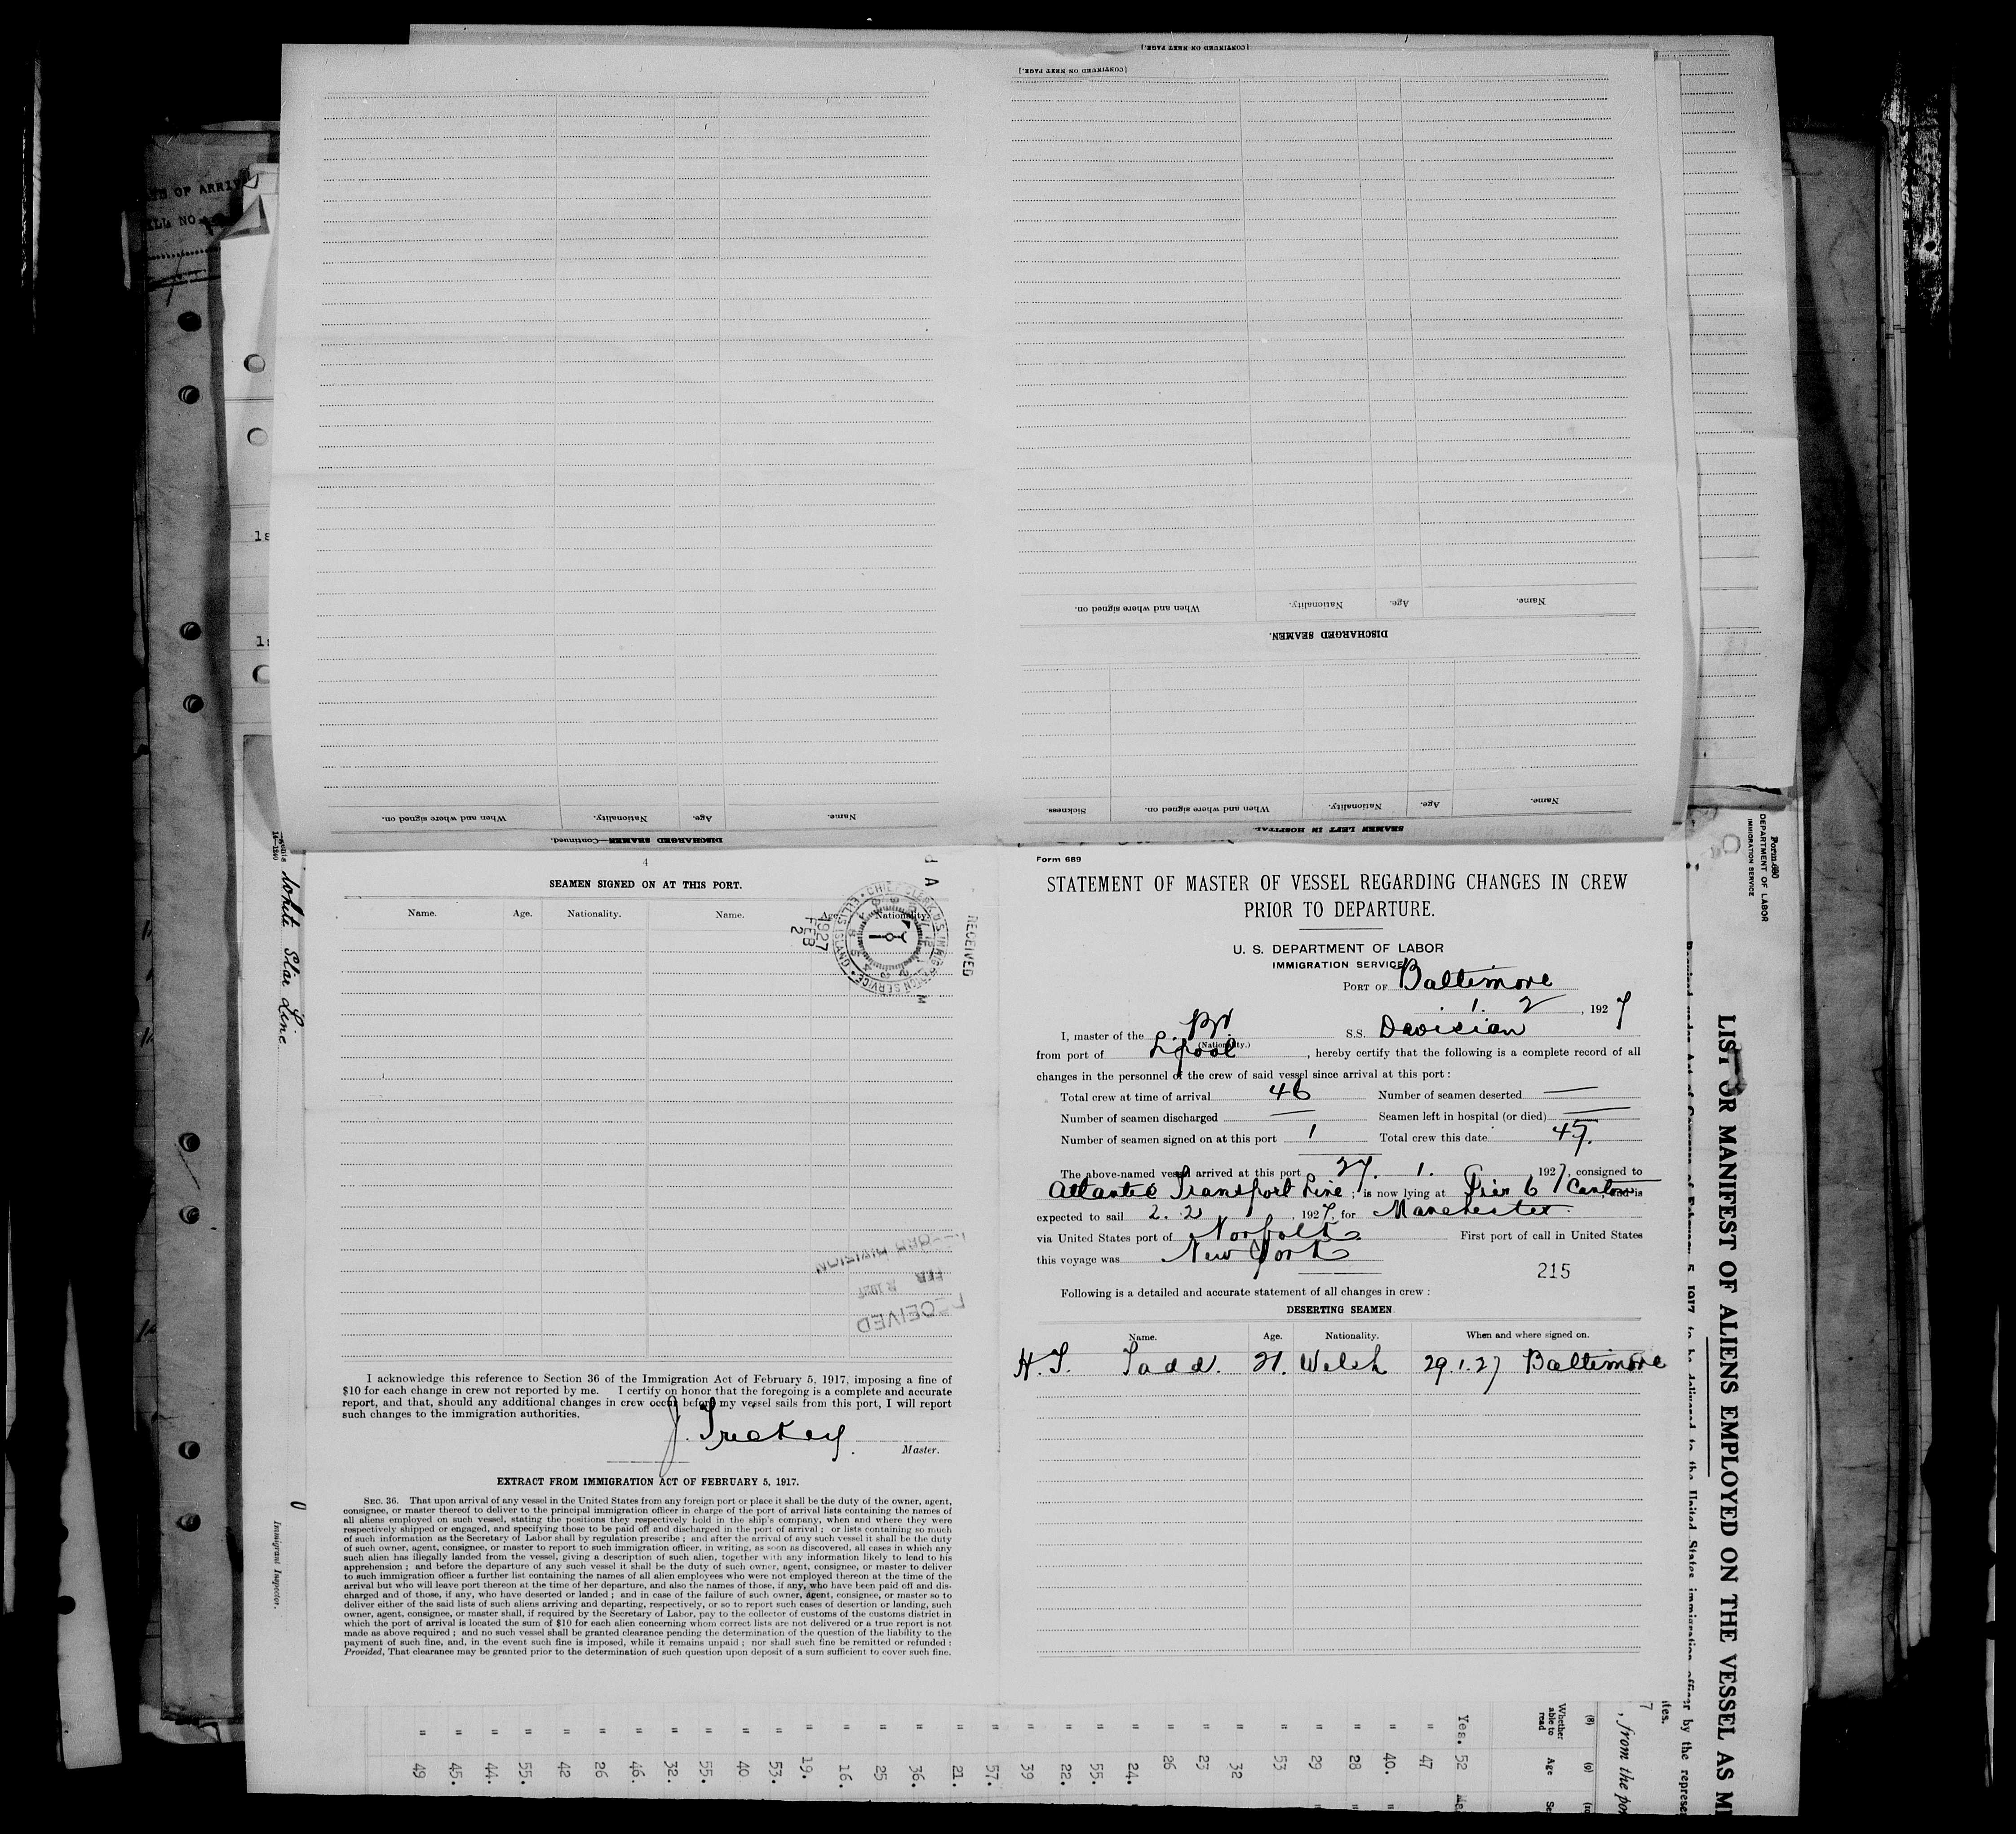 [CONTINUED ON NEXT PAGE.]
[CONTINUED ON NEXT PAGE.]
OF ARRIV
LL NO.
Name. Age. Nationality. When and where signed on.
DISCHARGED SEAMEN.
Name. Age. Nationality. When and where signed on. Sickness.
SEAMEN LEFT IN HOSPITAL.
Name. Age. Nationality. When and where signed on.
DISCHARGED SEAMEN—Continued.
4
SEAMEN SIGNED ON AT THIS PORT.
Name. Age. Nationality. Name. Age. Nationality.
RECEIVED
1927
FEB
2
CHIEF CLERK U.S. IMMIGRATION SERVICE ELLIS ISLAND
RECORD DIVISION
FEB 2 1927
RECEIVED
I acknowledge this reference to Section 36 of the Immigration Act of February 5, 1917, imposing a fine of
$10 for each change in crew not reported by me. I certify on honor that the foregoing is a complete and accurate
report, and that, should any additional changes in crew occur before my vessel sails from this port, I will report
such changes to the immigration authorities.
J. Trickey
Master.
EXTRACT FROM IMMIGRATION ACT OF FEBRUARY 5, 1917.
SEC. 36. That upon arrival of any vessel in the United States from any foreign port or place it shall be the duty of the owner, agent,
consignee, or master thereof to deliver to the principal immigration officer in charge of the port of arrival lists containing the names of
all aliens employed on such vessel, stating the positions they respectively hold in the ship's company, when and where they were
respectively shipped or engaged, and specifying those to be paid off and discharged in the port of arrival; or lists containing so much
of such information as the Secretary of Labor shall by regulation prescribe; and after the arrival of any such vessel it shall be the duty
of such owner, agent, consignee, or master to report to such immigration officer, in writing, as soon as discovered, all cases in which any
such alien has illegally landed from the vessel, giving a description of such alien, together with any information likely to lead to his
apprehension; and before the departure of any such vessel it shall be the duty of such owner, agent, consignee, or master to deliver
to such immigration officer a further list containing the names of all alien employees who were not employed thereon at the time of the
arrival but who will leave port thereon at the time of her departure, and also the names of those, if any, who have been paid off and dis-
charged and of those, if any, who have deserted or landed; and in case of the failure of such owner, agent, consignee, or master so to
deliver either of the said lists of such aliens arriving and departing, respectively, or so to report such cases of desertion or landing, such
owner, agent, consignee, or master shall, if required by the Secretary of Labor, pay to the collector of customs of the customs district in
which the port of arrival is located the sum of $10 for each alien concerning whom correct lists are not delivered or a true report is not
made as above required; and no such vessel shall be granted clearance pending the determination of the question of the liability to the
payment of such fine, and, in the event such fine is imposed, while it remains unpaid; nor shall such fine be remitted or refunded:
Provided, That clearance may be granted prior to the determination of such question upon deposit of a sum sufficient to cover such fine.
Form 689
STATEMENT OF MASTER OF VESSEL REGARDING CHANGES IN CREW
PRIOR TO DEPARTURE.
U. S. DEPARTMENT OF LABOR
IMMIGRATION SERVICE
PORT OF Baltimore
1. 2, 1927
I, master of the Br. S.S. Davisian
(Nationality.)
from port of L'pool, hereby certify that the following is a complete record of all
changes in the personnel of the crew of said vessel since arrival at this port:
Total crew at time of arrival 46 Number of seamen deserted —
Number of seamen discharged — Seamen left in hospital (or died) —
Number of seamen signed on at this port 1 Total crew this date 47.
The above-named vessel arrived at this port 27. 1. 1927, consigned to
Atlantic Transport Line; is now lying at Pier 6 Canton, and is
expected to sail 2. 2, 1927, for Manchester
via United States port of Norfolk. First port of call in United States
this voyage was New York
215
Following is a detailed and accurate statement of all changes in crew:
DESERTING SEAMEN.
Name. Age. Nationality. When and where signed on.
H. T. Tadd. 21. Welsh 29.1.27 Baltimore
White Star Line
14—1240
Immigrant Inspector.
Form 680
DEPARTMENT OF LABOR
IMMIGRATION SERVICE
LIST OR MANIFEST OF ALIENS EMPLOYED ON THE VESSEL AS M
, from the po
(8) (9)
Whether able to read Age
Yes. 52
" 47
" 40.
" 28
" 29
" 53
" 32
" 23
" 26
" 24.
" 55.
" 22.
" 39
" 57.
" 21.
" 36.
" 25
" 16.
" 19.
" 53.
" 40
" 55.
" 32.
" 46.
" 26
" 42
" 55.
" 44.
" 45.
" 49